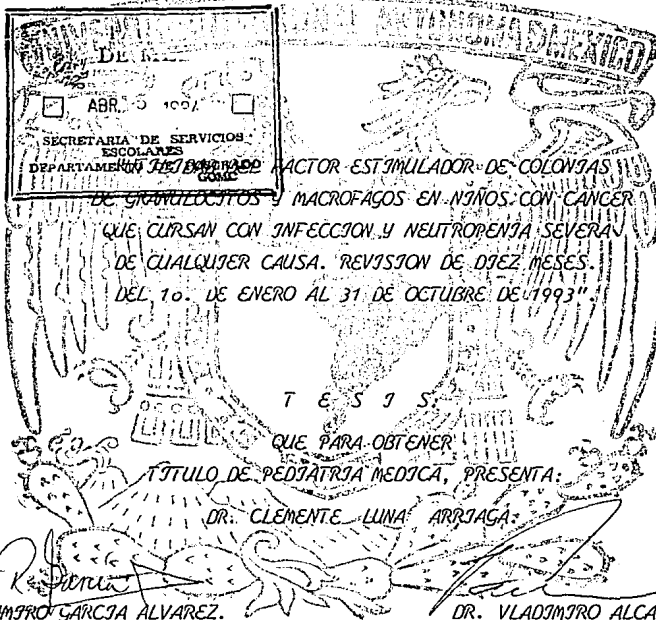 AUTONOMA DE MEXICO
ABR. 5 199
SECRETARIA DE SERVICIOS
ESCOLARES
DEPARTAMENTO DE
FACTOR ESTIMULADOR DE COLONIAS
DE GRANULOCITOS Y MACROFAGOS EN NIÑOS CON CANCER
QUE CURSAN CON INFECCION Y NEUTROPENIA SEVERA
DE CUALQUIER CAUSA. REVISION DE DIEZ MESES.
DEL 1o. DE ENERO AL 31 DE OCTUBRE DE 1993".
T E S I S
QUE PARA OBTENER
TITULO DE PEDIATRIA MEDICA, PRESENTA:
DR. CLEMENTE LUNA ARRIAGA.
GARCIA ALVAREZ.
DR. VLADIMIRO ALCA